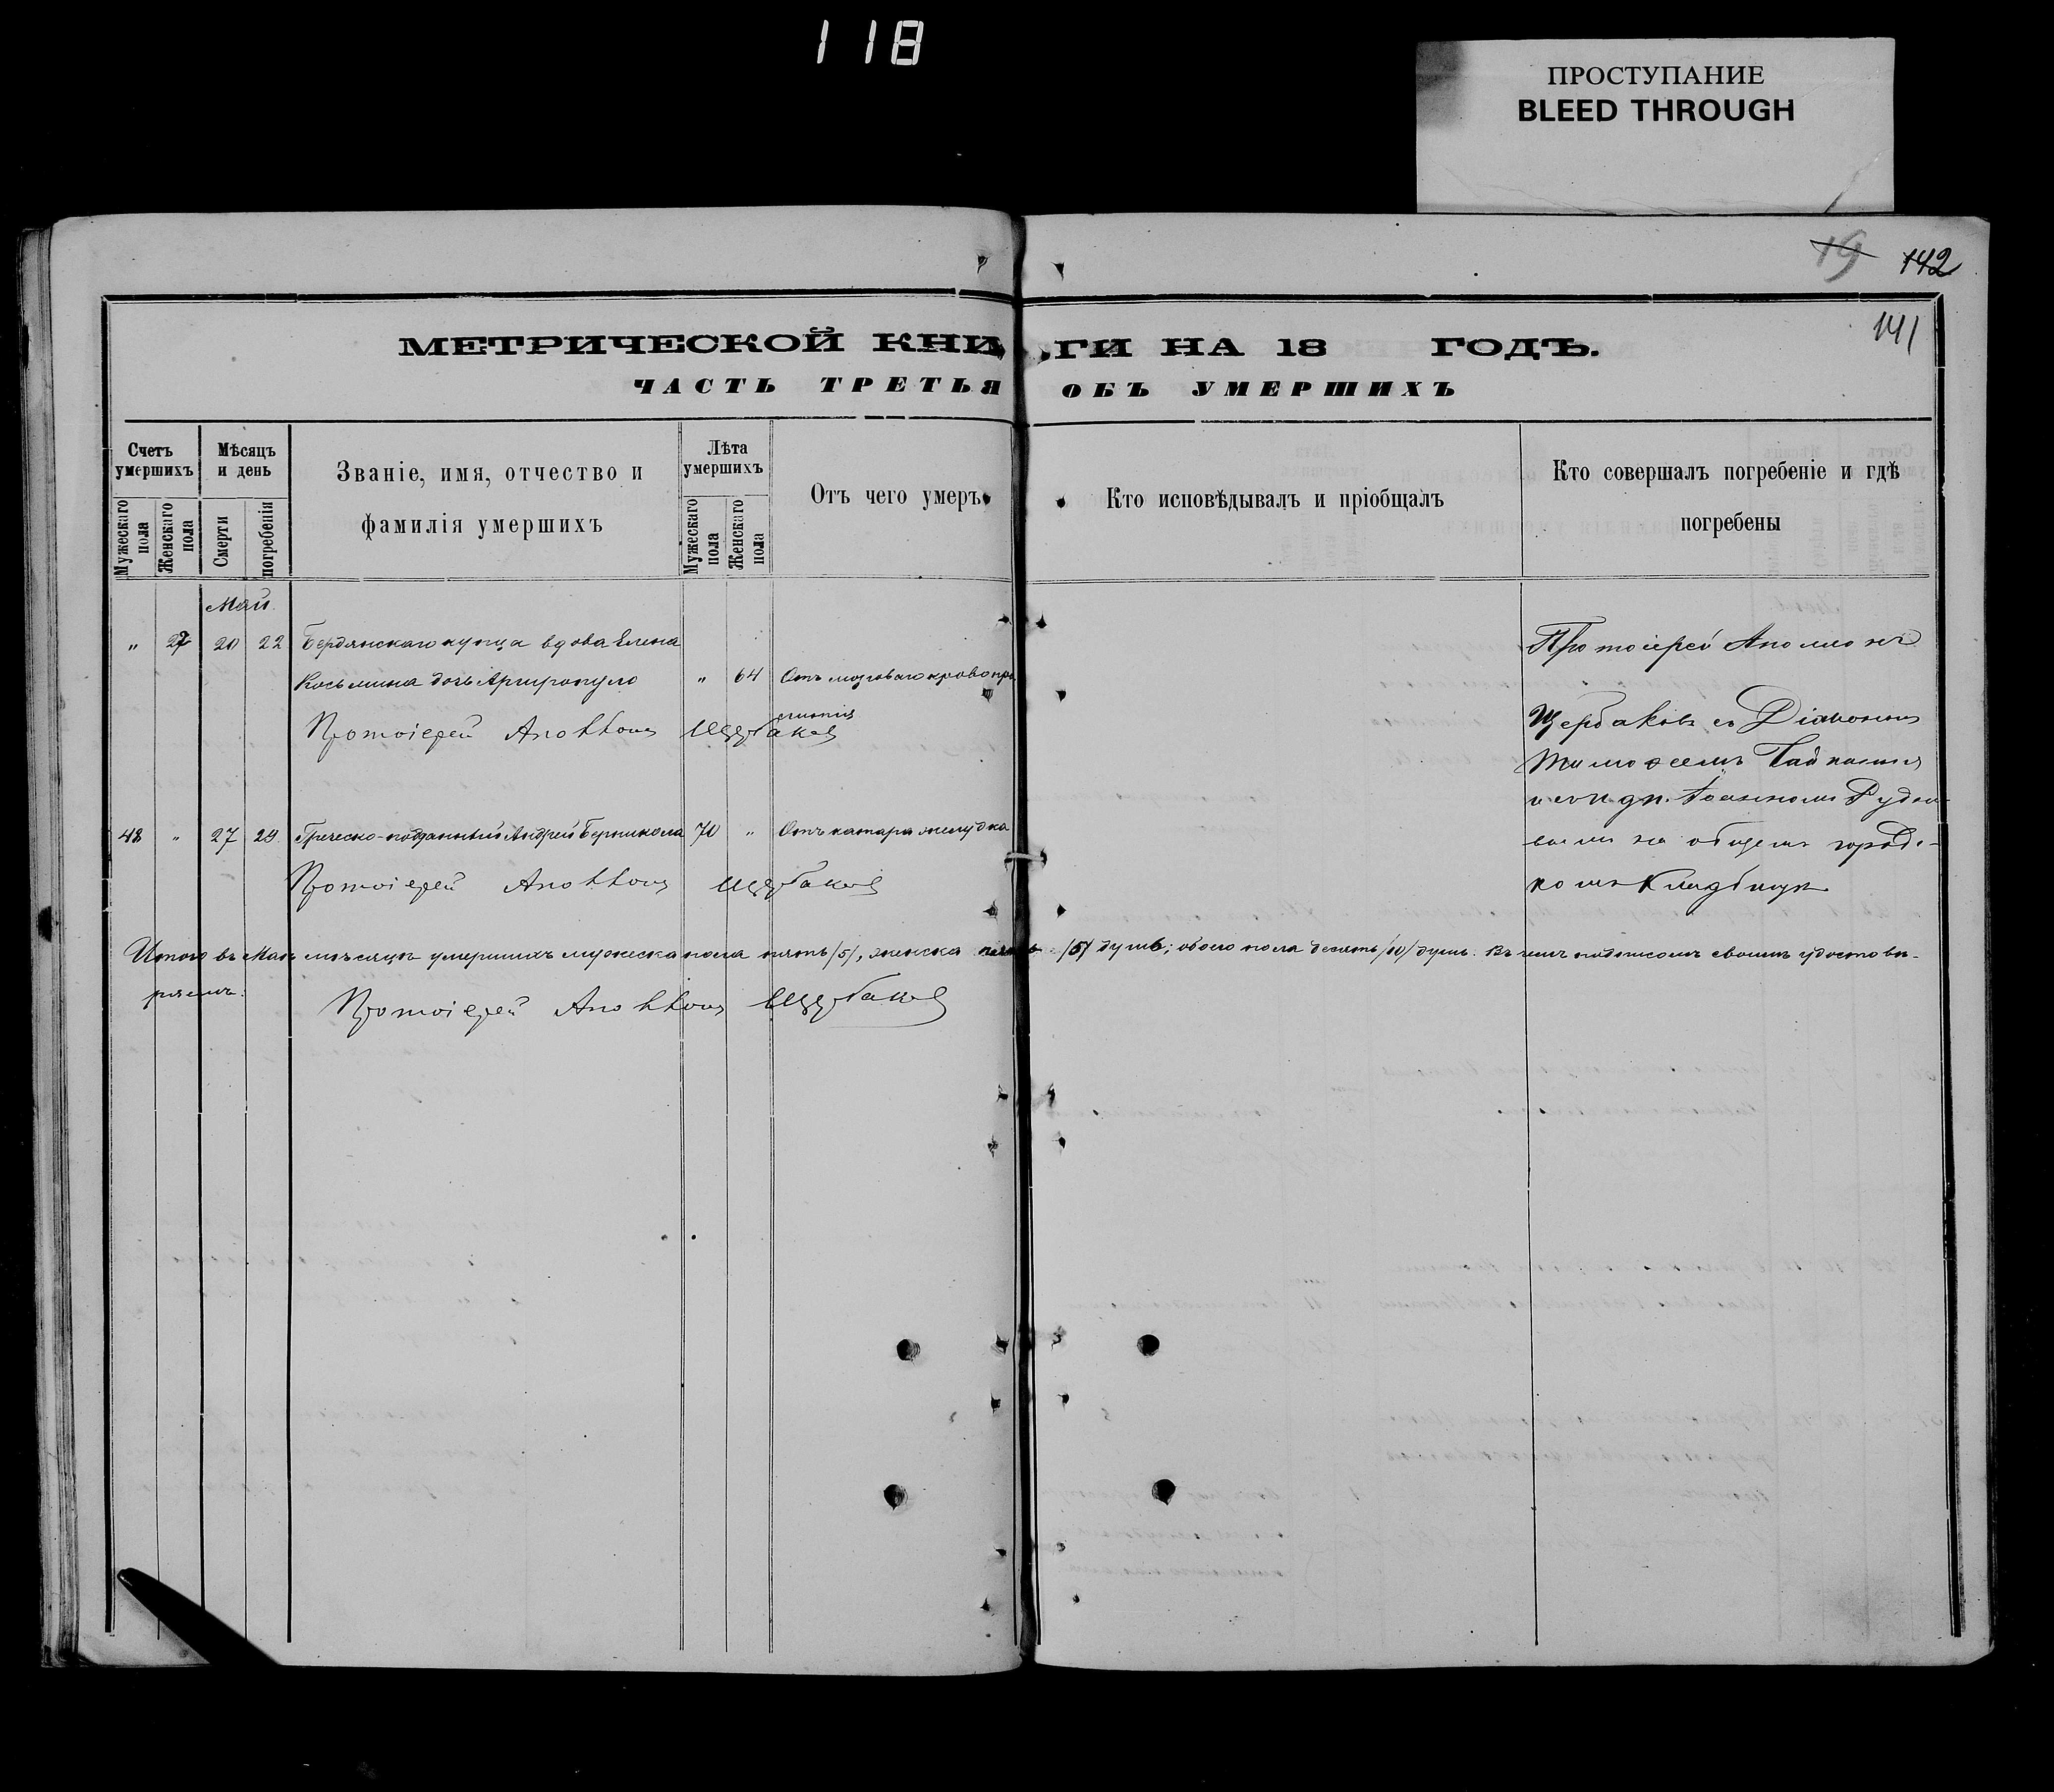 118
ПРОСТУПАНИЕ
BLEED THROUGH
19 142
141
МЕТРИЧЕСКОЙ КНИГИ НА 18 ГОДЪ.
ЧАСТЬ ТРЕТЬЯ ОБЪ УМЕРШИХЪ
Счетъ умершихъ
Мужескаго пола
Женскаго пола
Мѣсяцъ и день
Смерти
погребенія
Званіе, имя, отчество и
фамилія умершихъ
Лѣта умершихъ
Мужескаго пола
Женскаго пола
Отъ чего умеръ
Кто исповѣдывалъ и пріобщалъ
Кто совершалъ погребеніе и гдѣ
погребены
Май
" 27 20 22 Бердянскаго купца вдова Елена
Косьмина дочь Аргиропуло " 64 Отъ мозговаго кровоизл
Протоіерей Аполлонъ Щербаковъ
Протоіерей Аполлонъ
Щербаковъ съ Діакономъ
Тимоѳеемъ
Іоанномъ
на общемъ городс-
комъ кладбищѣ
48 " 27 29 Греческо-подданный Андрей 70 " Отъ катара желудка
Протоіерей Аполлонъ Щербаковъ
Итого въ Маѣ мѣсяцѣ умершихъ мужеска пола пять /5/, женска пять /5/ душъ; обоего пола десять /10/ душъ. Въ чемъ подписомъ своимъ удостовѣ-
ряемъ:
Протоіерей Аполлонъ Щербаковъ